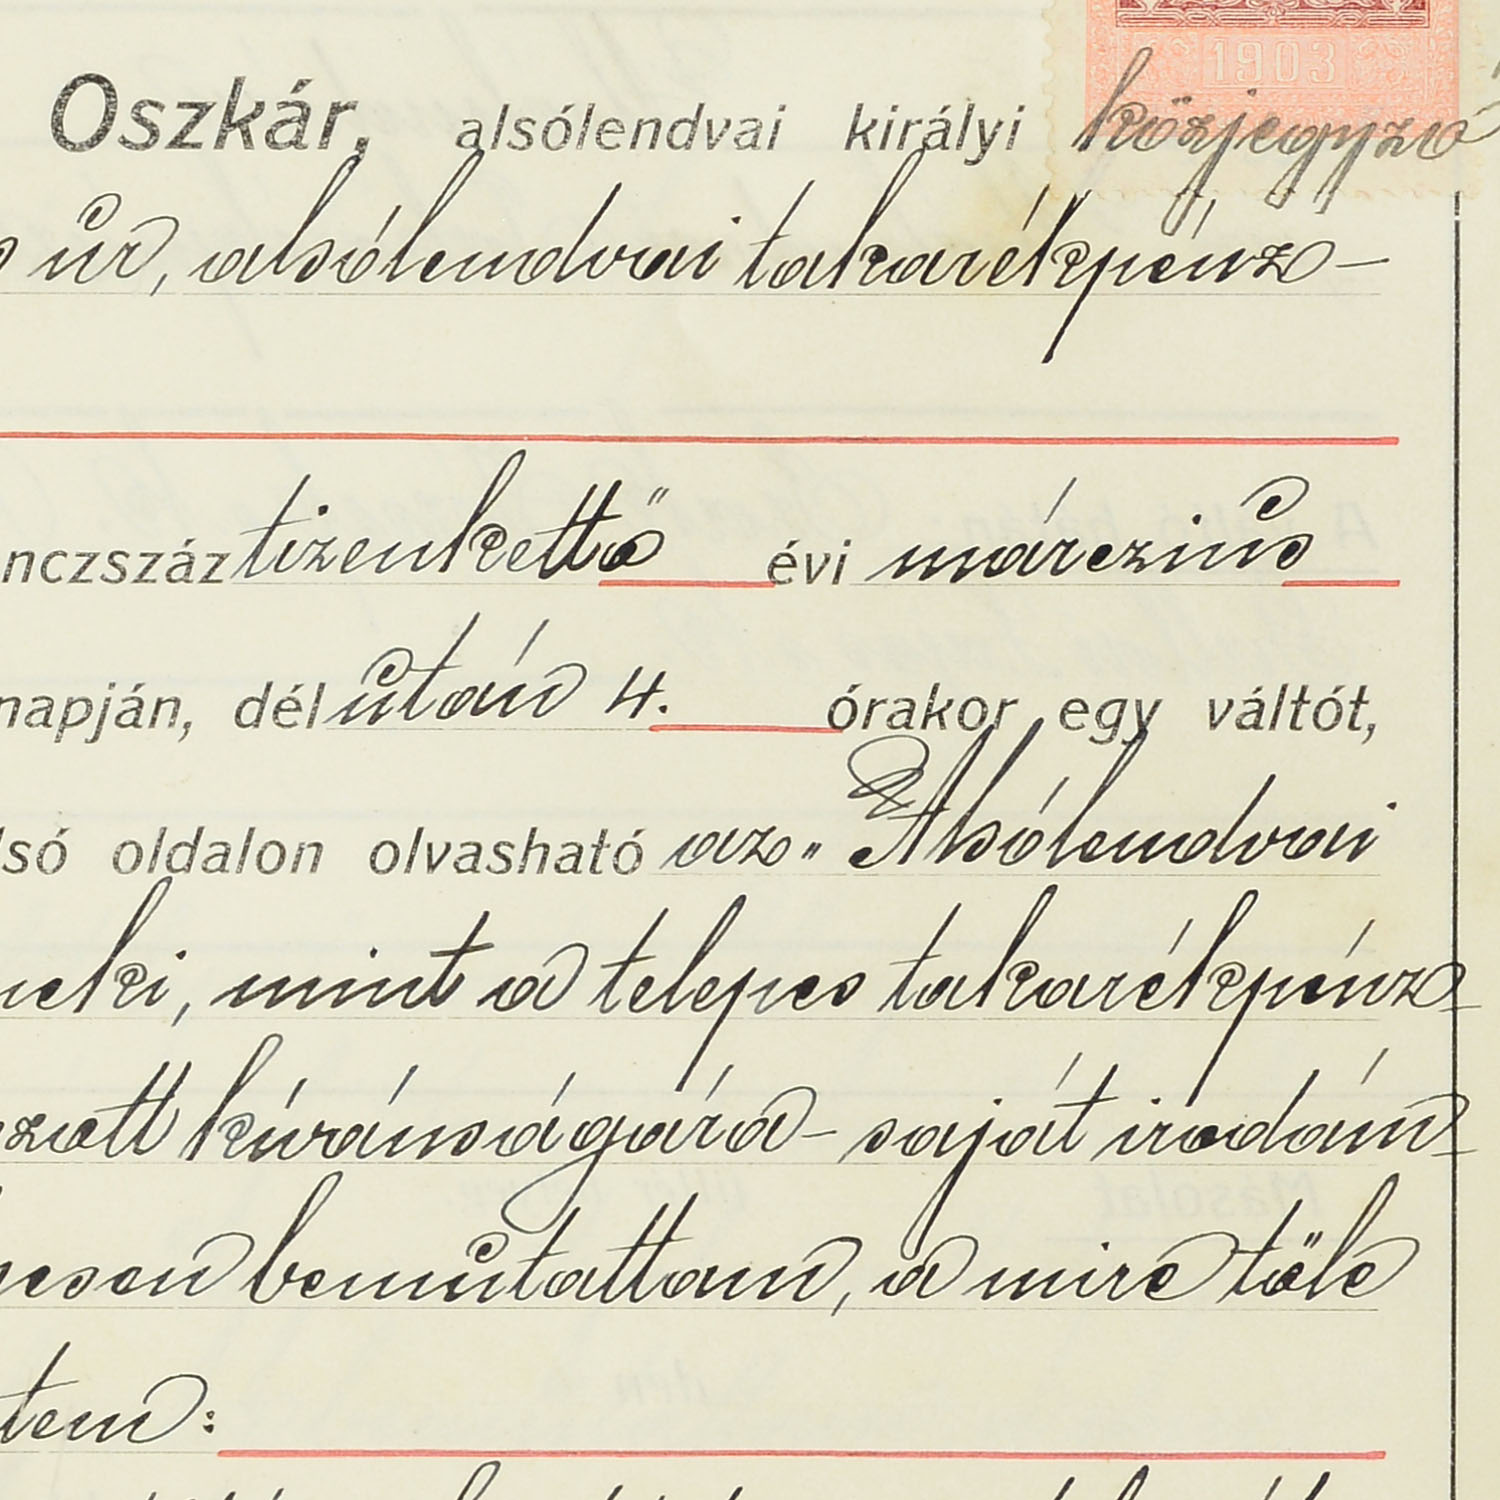 1903
Oszkár, alsólendvai királyi közjegyző
úr, alsólendvai takarékpénz-
nczszáz tizenkettő évi márczius
napján, dél után 4. órakor egy váltót,
lsó oldalon olvasható az „Alsólendvai
neki, mint a telepes takarékpénz-
zott kívánságára - saját irodám-
esen bemutattam, a mire tőle
tem: